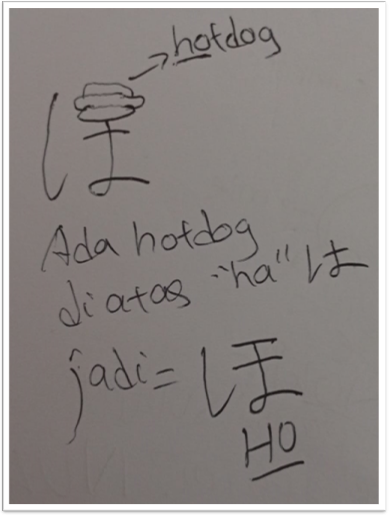 hotdog
ほ
Ada hotdog
diatas "ha" は
jadi = ほ
HO